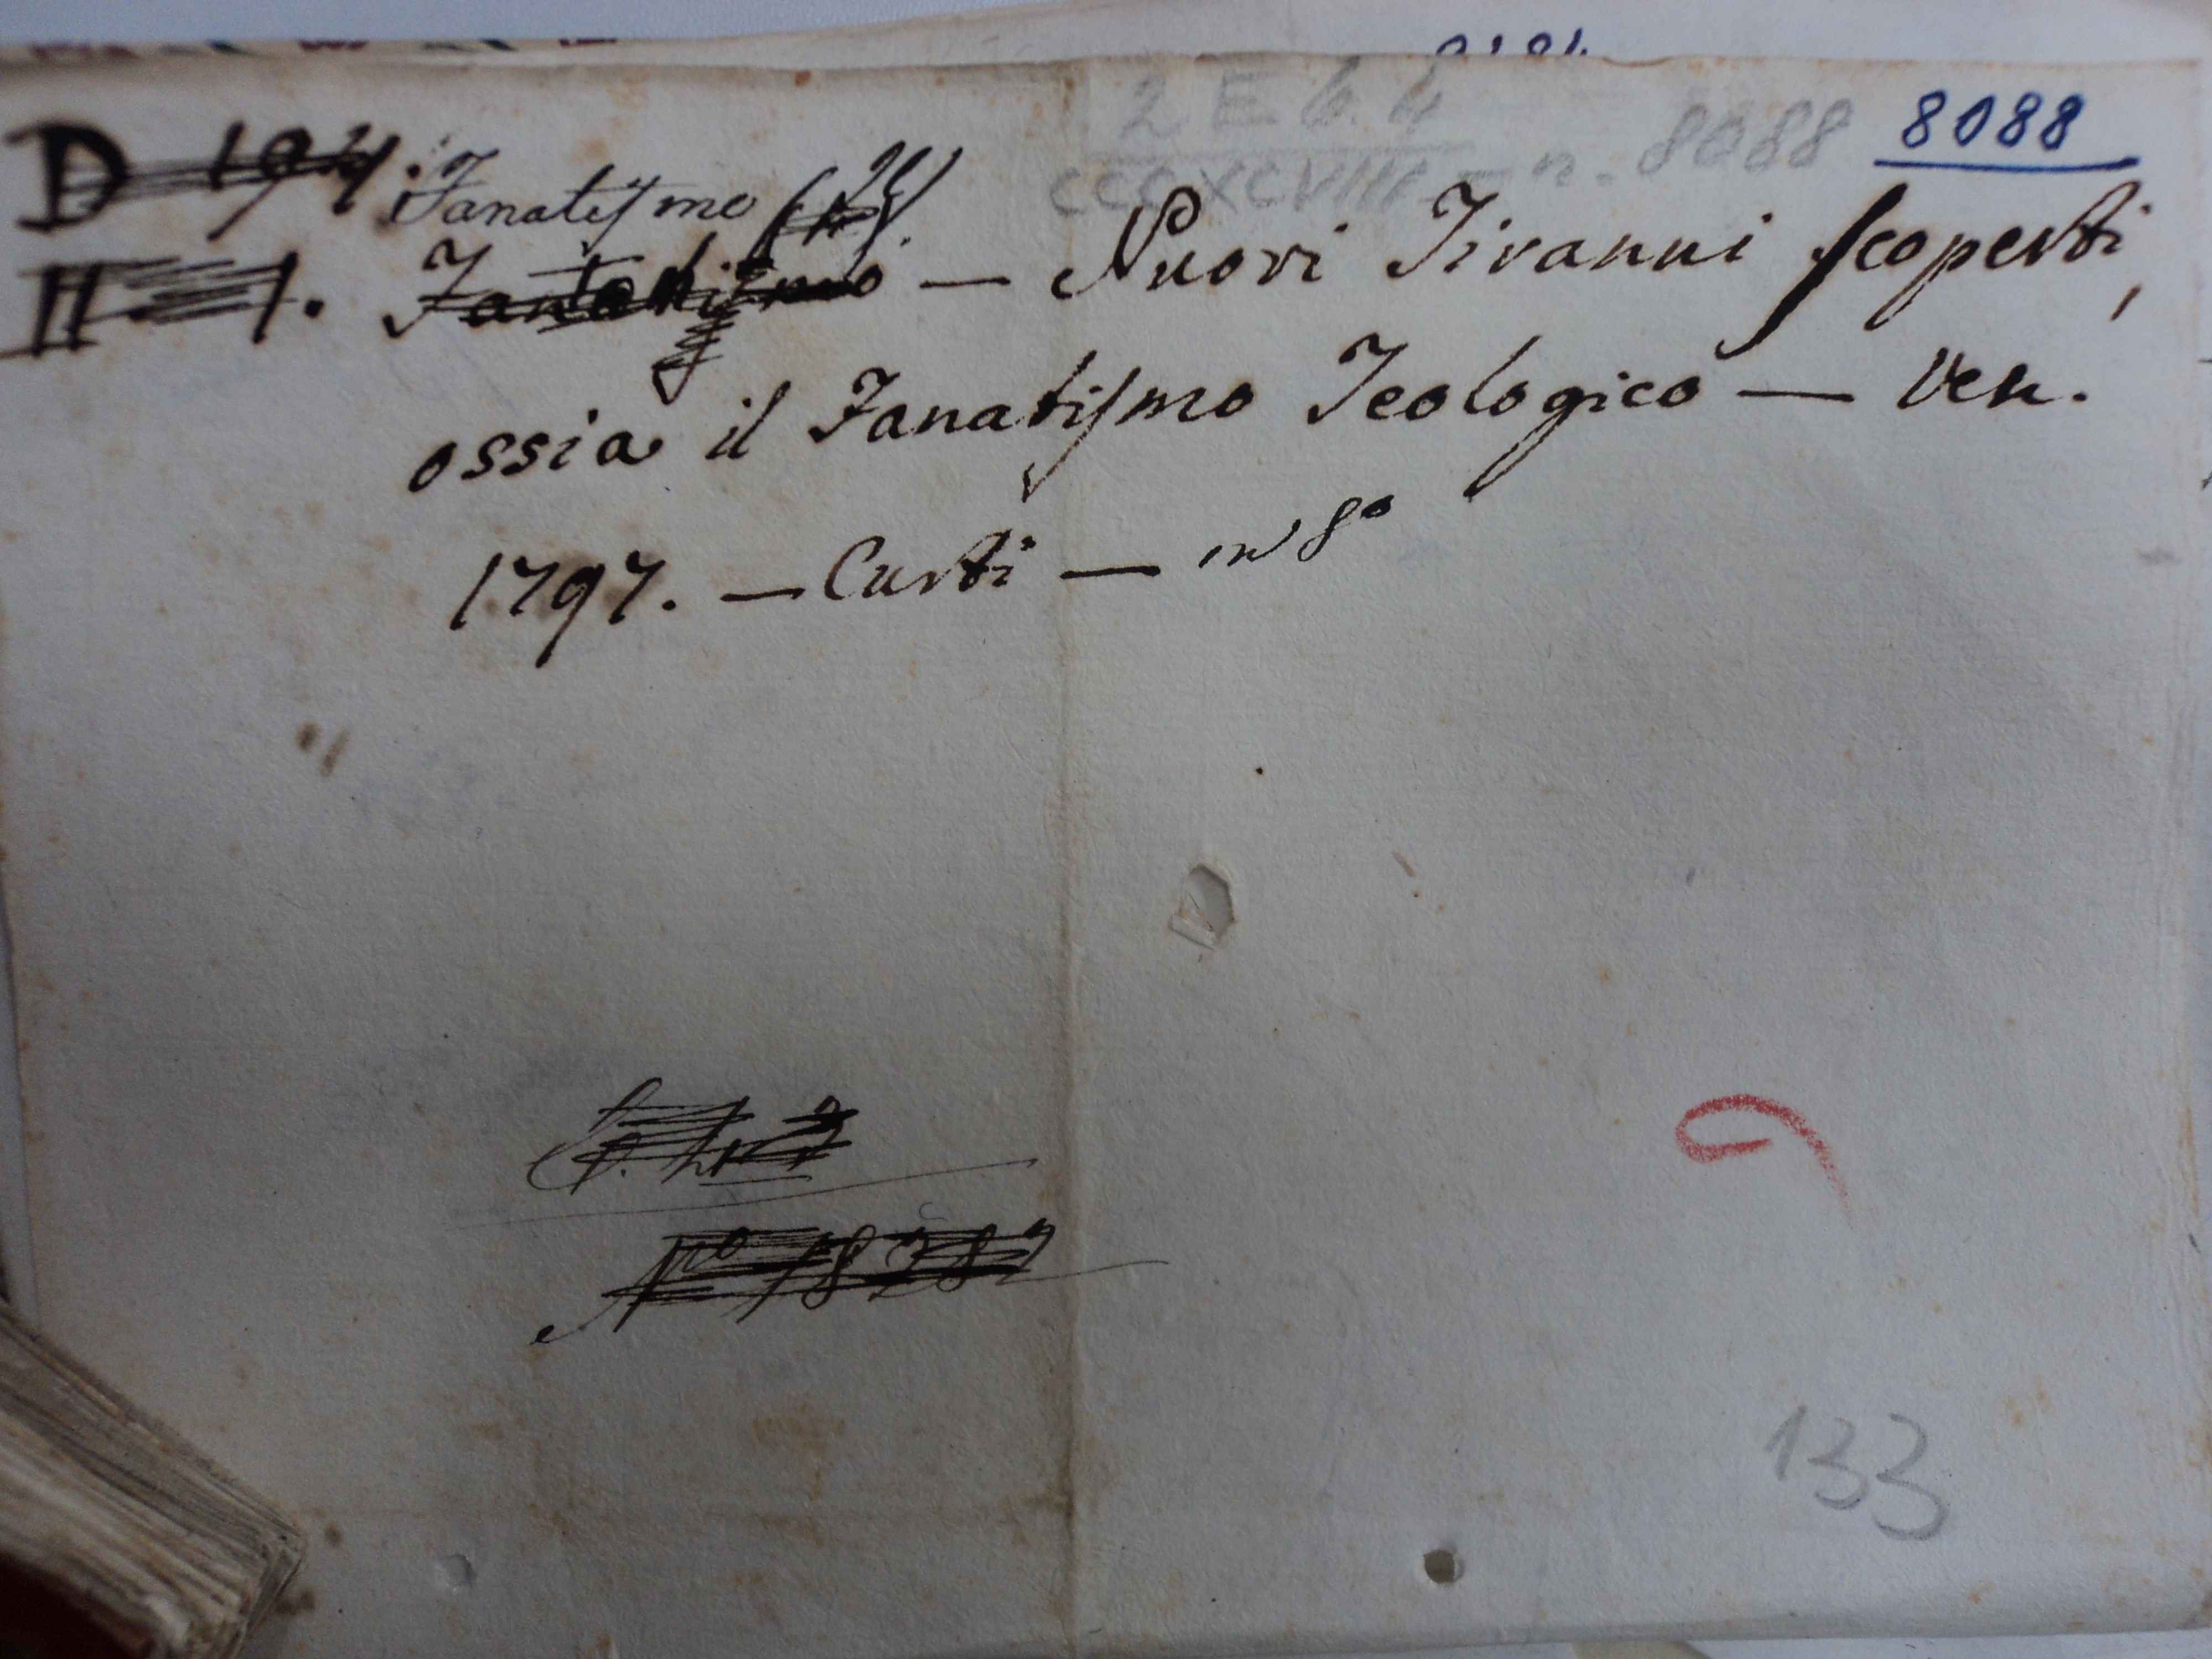 2 E 6. 4
CCCXCVIII - n. 8088 8088
D 194. Fanatismo
II 1. Fanatismo — Nuovi Tiranni scoperti,
ossia il Fanatismo Teologico — Ven.
1797. — Curti — in 8º
Nº 18282
133